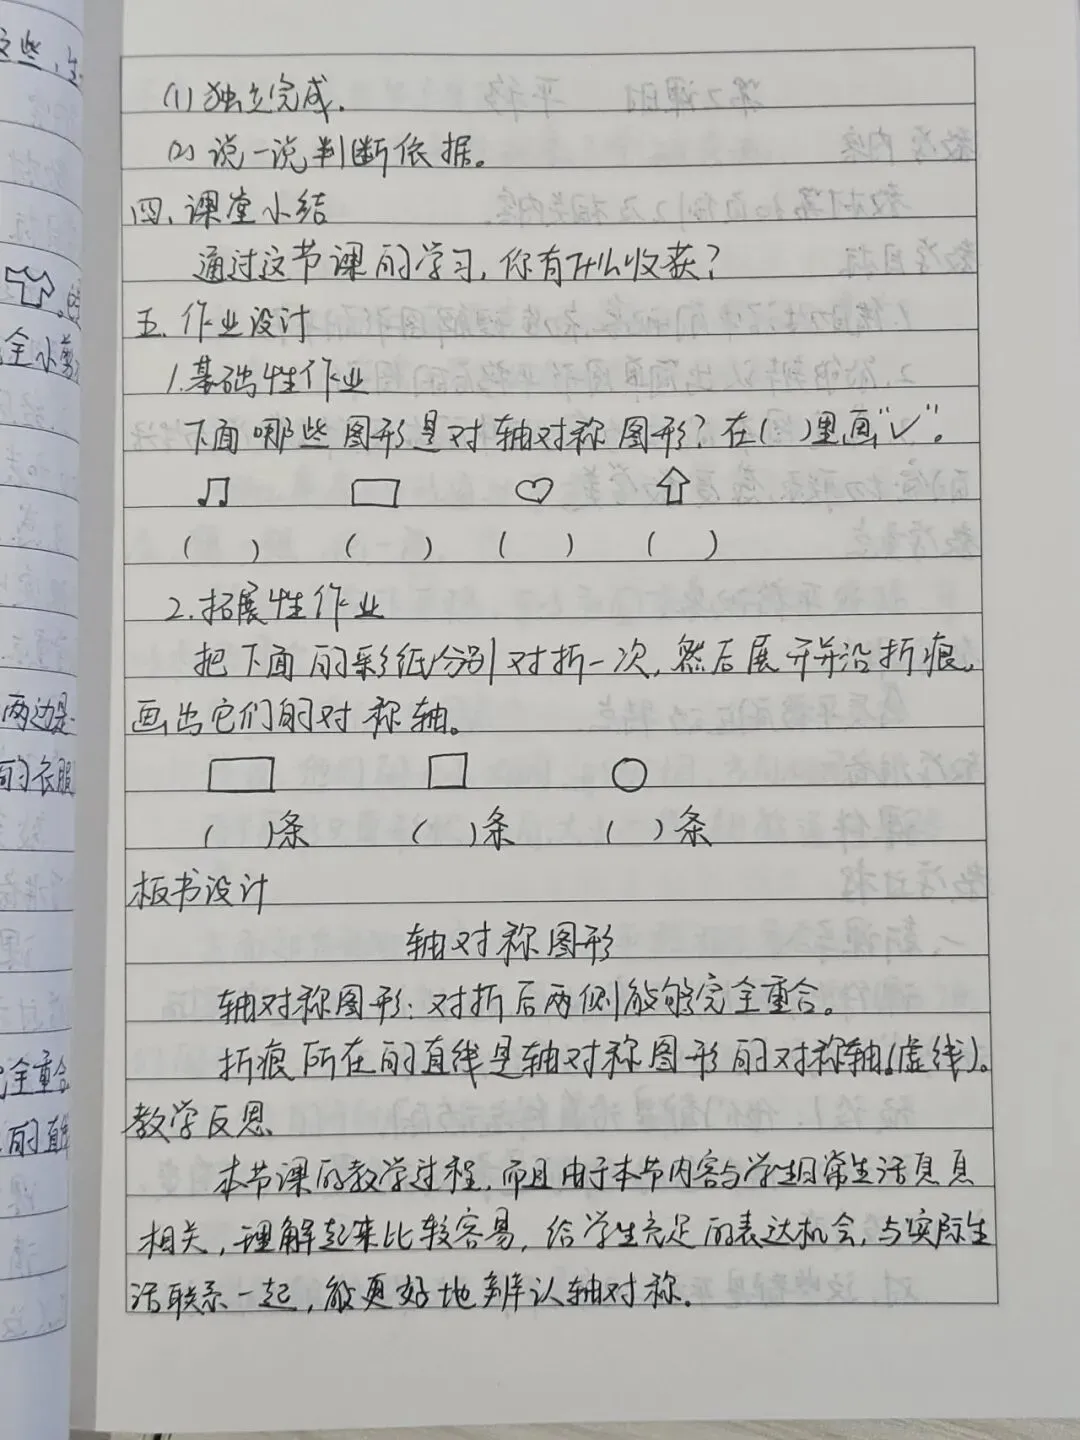 (1) 独立完成.
(2) 说一说判断依据。
四、课堂小结
通过这节课的学习,你有什么收获?
五、作业设计
1.基础性作业
下面哪些图形是对轴对称图形?在( )里画"✓"。
( ) ( ) ( ) ( )
2.拓展性作业
把下面的彩纸分别对折一次,然后展开并沿折痕,
画出它们的对称轴。
( )条 ( )条 ( )条
板书设计
轴对称图形
轴对称图形:对折后两侧能够完全重合。
折痕所在的直线是轴对称图形的对称轴(虚线)。
教学反思
本节课的教学过程,而且由于本节内容与学生日常生活息息
相关,理解起来比较容易,给学生充足的表达机会,与实际生
活联系一起,能更好地辨认轴对称.
这些,生
全小剪
两边是
的衣服
完全重合
的直线